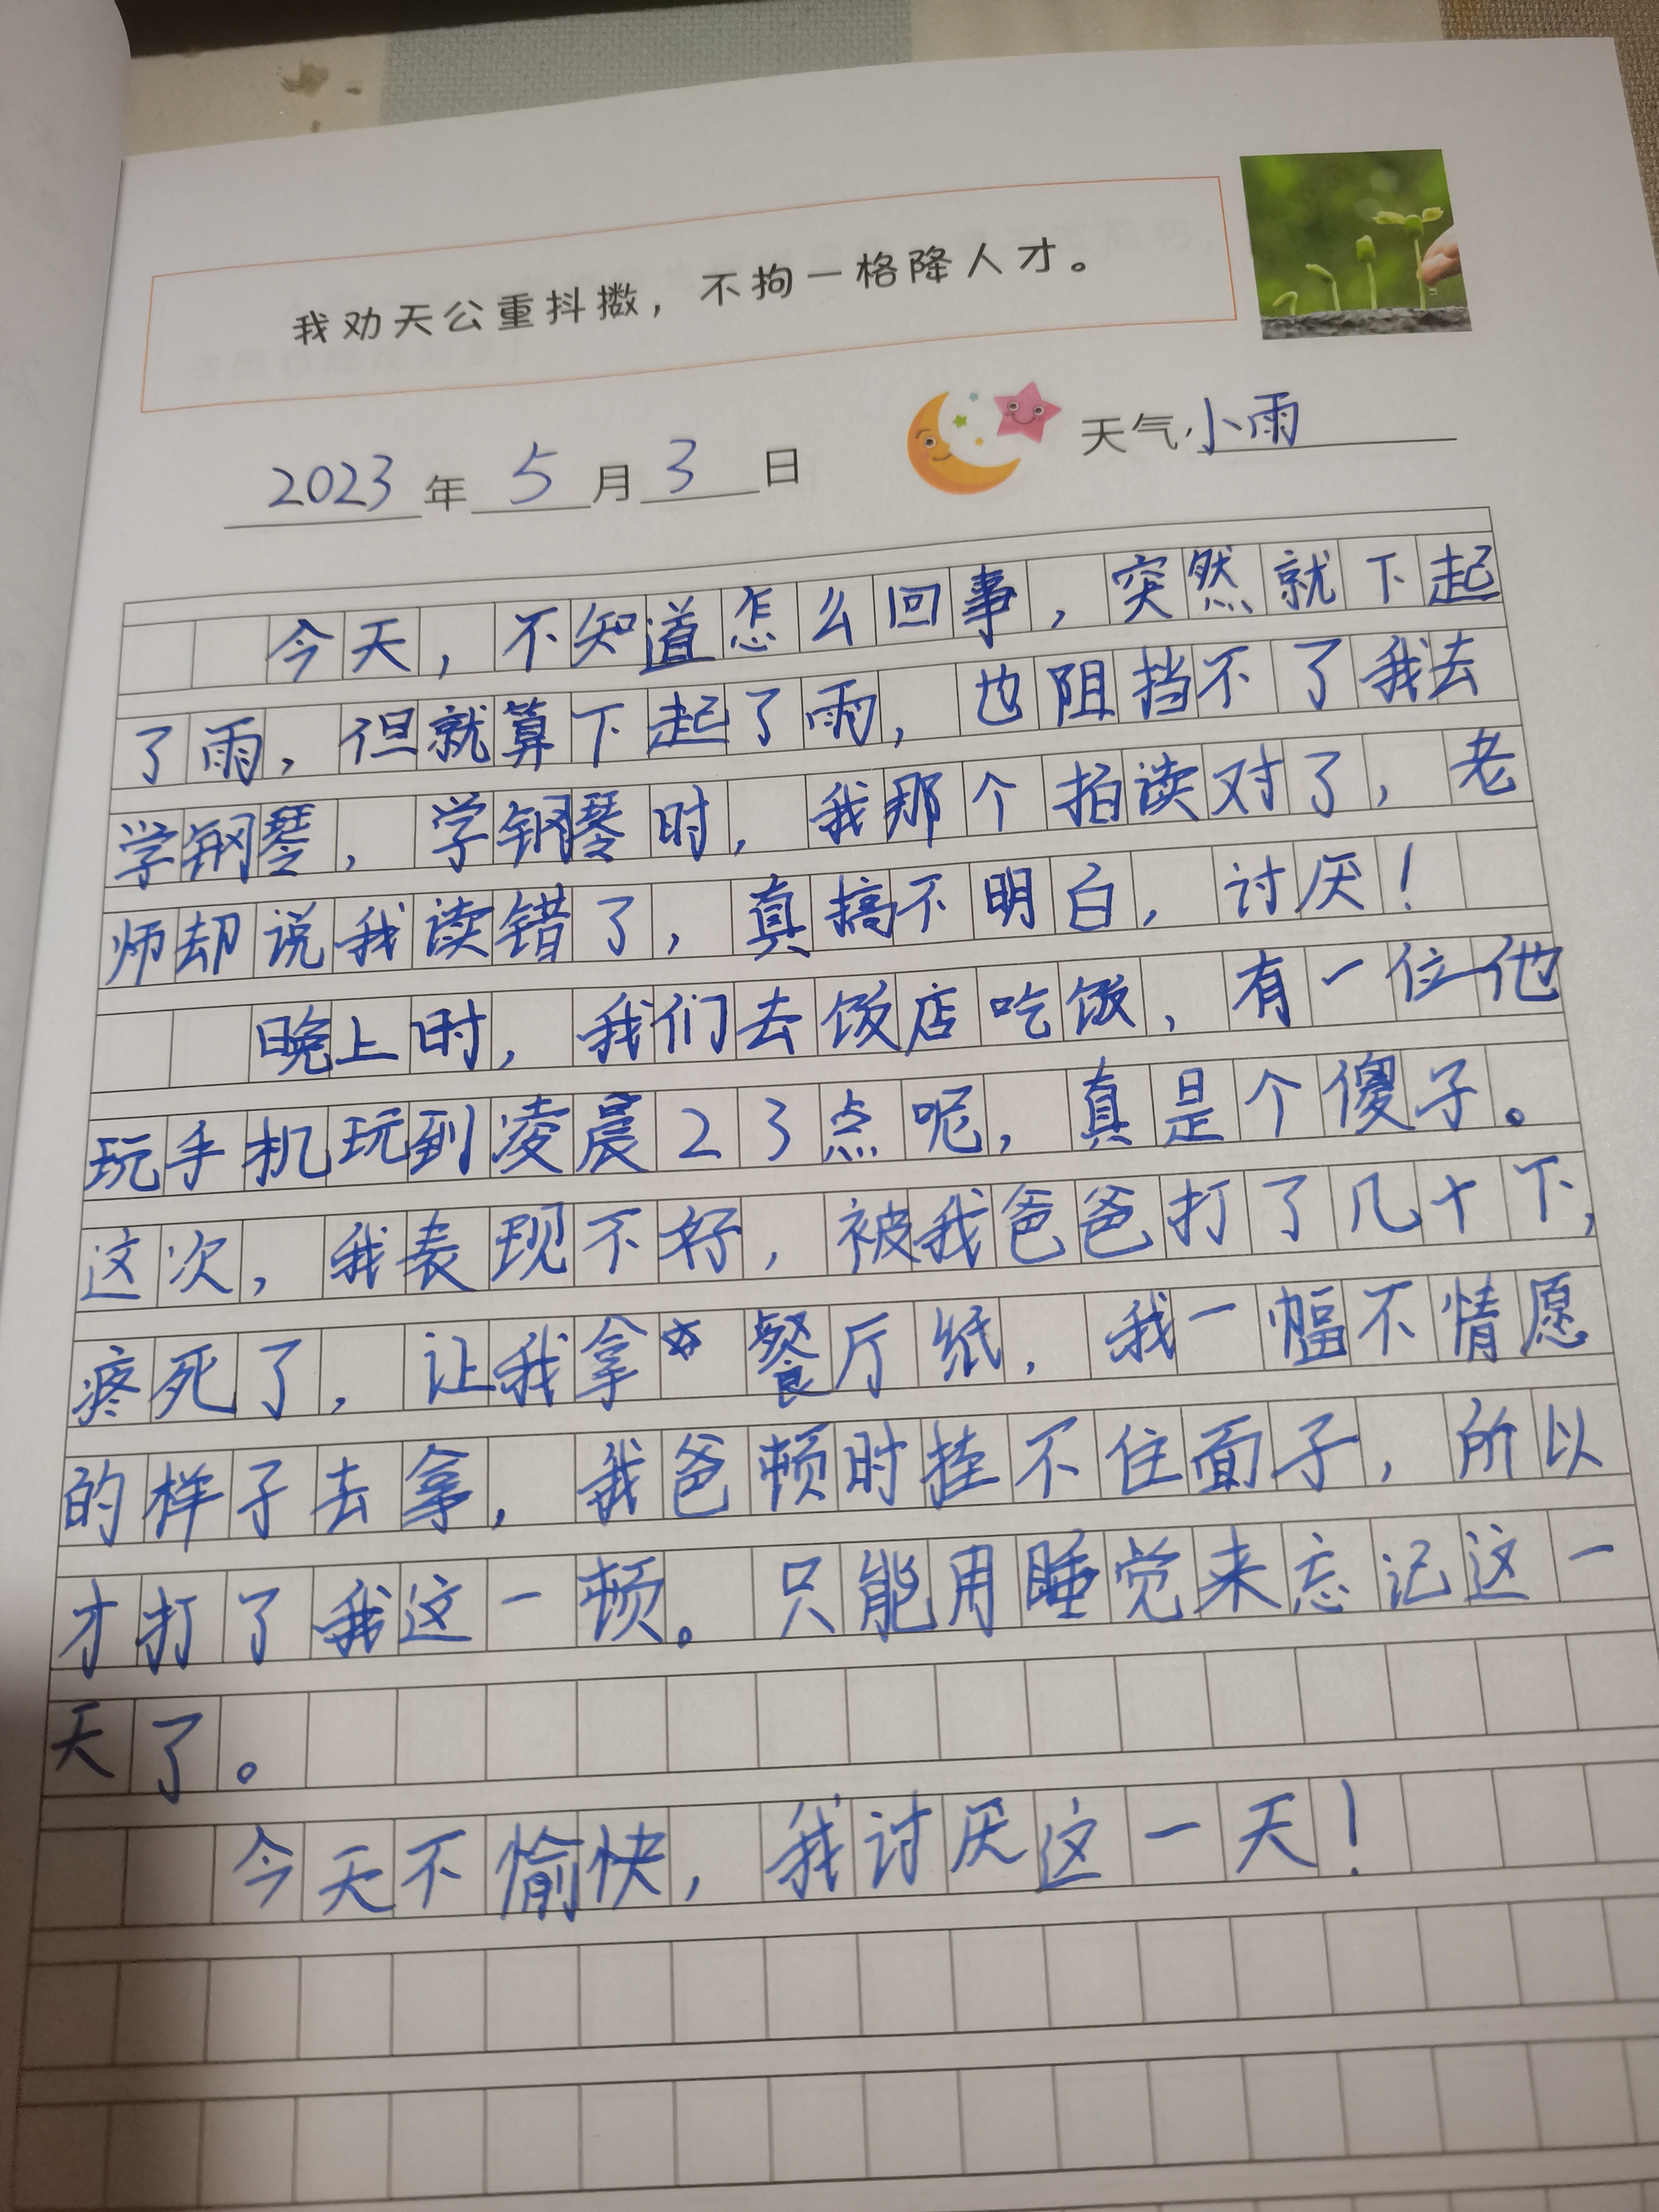 我劝天公重抖擞，不拘一格降人才。
2023年5月3日 天气:小雨
今天，不知道怎么回事，突然就下起
了雨，但就算下起了雨，也阻挡不了我去
学钢琴，学钢琴时，我那个拍读对了，老
师却说我读错了，真搞不明白，讨厌！
晚上时，我们去饭店吃饭，有一位他
玩手机玩到凌晨23点呢，真是个傻子。
这次，我表现不好，被我爸爸打了几十下，
疼死了，让我拿 餐厅纸，我一幅不情愿
的样子去拿，我爸顿时挂不住面子，所以
才打了我这一顿。只能用睡觉来忘记这一
天了。
今天不愉快，我讨厌这一天！